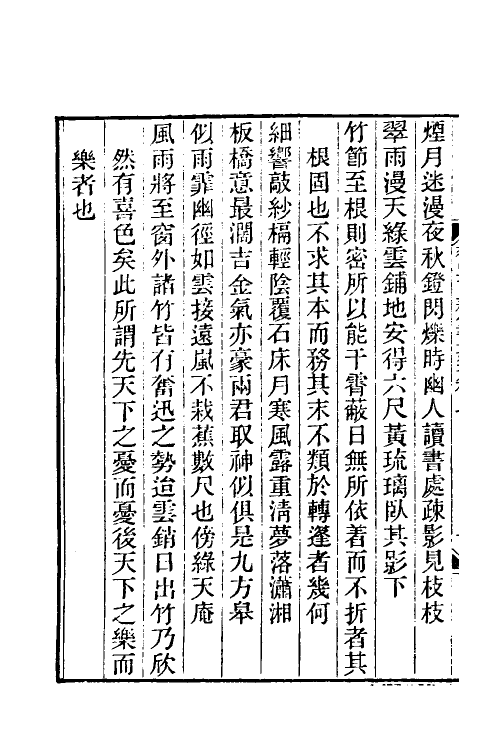 煙月迷漫夜秋鐙閃爍時幽人讀書處疎影見枝枝
翠雨漫天綠雲鋪地安得六尺黃琉璃臥其影下
竹節至根則密所以能干霄蔽日無所依着而不折者其
根固也不求其本而務其末不類於轉蓬者幾何
細響敲紗槅輕陰覆石床月寒風露重清夢落瀟湘
板橋意最濶吉金氣亦豪兩君取神似俱是九方皋
似雨霏幽徑如雲接遠嵐不栽蕉數尺也傍綠天庵
風雨將至窗外諸竹皆有奮迅之勢迨雲銷日出竹乃欣
然有喜色矣此所謂先天下之憂而憂後天下之樂而
樂者也